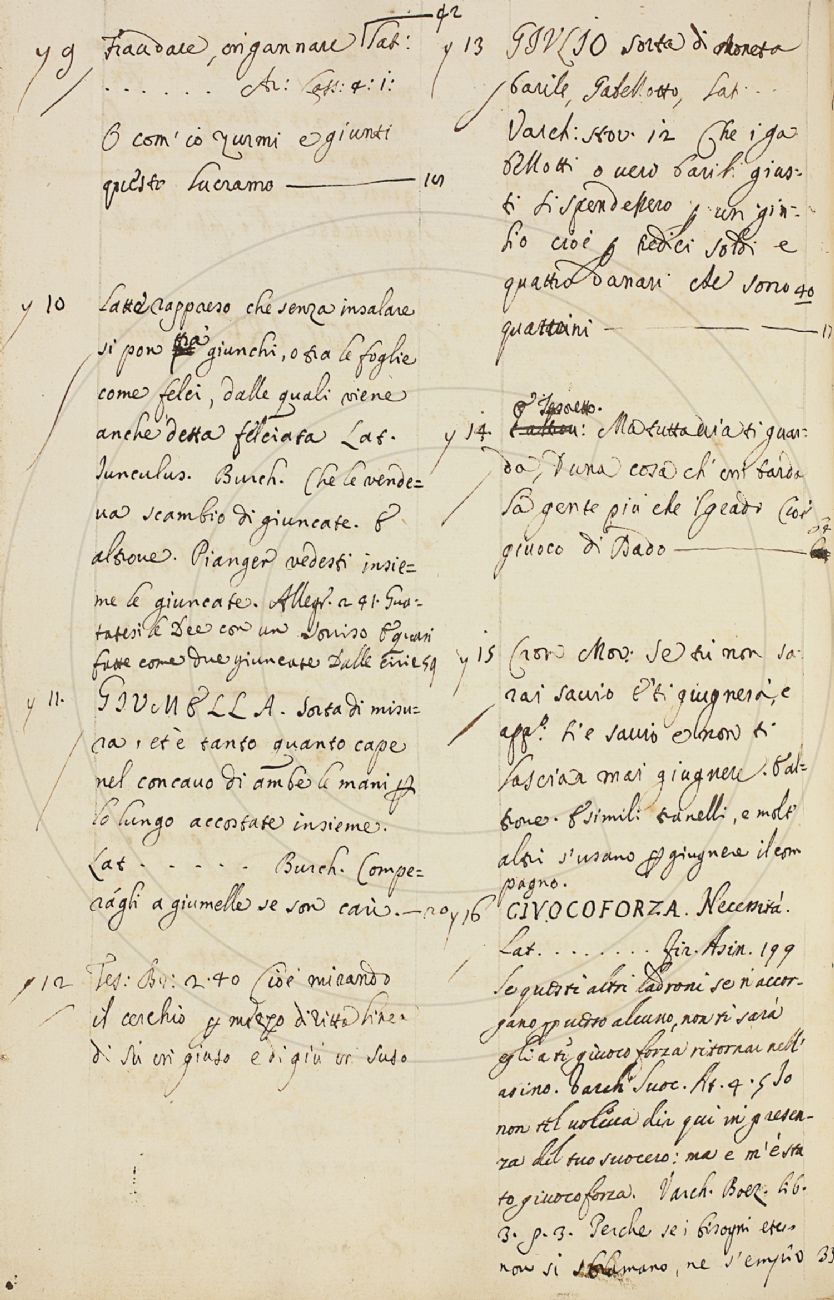 42
y 9 Fraudare, ingannare Lat:
. . . . . . Ar: Cass: 4: 1:
O com' io giunti
questo Lucramo
y 10 Latte rappreso che senza insalare
si pon tra giunchi, o tra le foglie
come felci, dalle quali viene
anche detta felciata Lat.
Iunculus. Burch. Che le vende=
va scambio di giuncate. E
altrove. Pianger vedesti insie=
me le giuncate. Allegr. 241. Gua=
tatesi le Dee con un sorriso E quasi
fatte come due giuncate Dalle 59
y 11. GIUMELLA. Sorta di misu=
ra, et è tanto quanto cape
nel concavo di ambe le mani p
lo lungo accostate insieme.
Lat . . . . . Burch. Compe=
rágli a giumelle se son cari. 20
y 12 Tes: Br: 2. 40 Cioè mirando
il cerchio p mezzo diritta linea
di sù in giuso e di giù in suso
y 13 GIULIO sorta di moneta
barile, Gabellotto, Lat . . .
Varch: Stor. 12 Che i ga
bellotti o vero barili gius=
ti si spendessero p un giu=
lio cioè p tredici soldi e
quattro danari che sono 40
quattrini
y 14 E Tesoretto.
Ma tuttavia ti guar=
da, D'una cosa ch' imbarda
La gente più che 'l grado Cioè
giuoco di Dado
y 15 Cron Mor: Se tu non sa
rai savio E' ti giugnerà, e
app.º Sie savio e non ti
lascia mai giugnere. E al=
trove. E simili tranelli, e molt'
altri s'usano p giugnere il com
pagno.
y 16 GIUOCOFORZA. Necessità.
Lat. . . . . . . . Fir. Asin. 199
Se questi altri ladroni se n'accor-
gano punto alcuno, non ti sarà
egli a te giuoco forza ritornar nell'
asino. Varch. Suoc. At. 4. 5 Io
non tel voleva dir qui in presen-
za del tuo suocero: ma e m'è sta
to giuocoforza. Varch. Boez. lib.
3. p. 3. Perche se i bisogni
non si sfamano, ne s'empiio 33